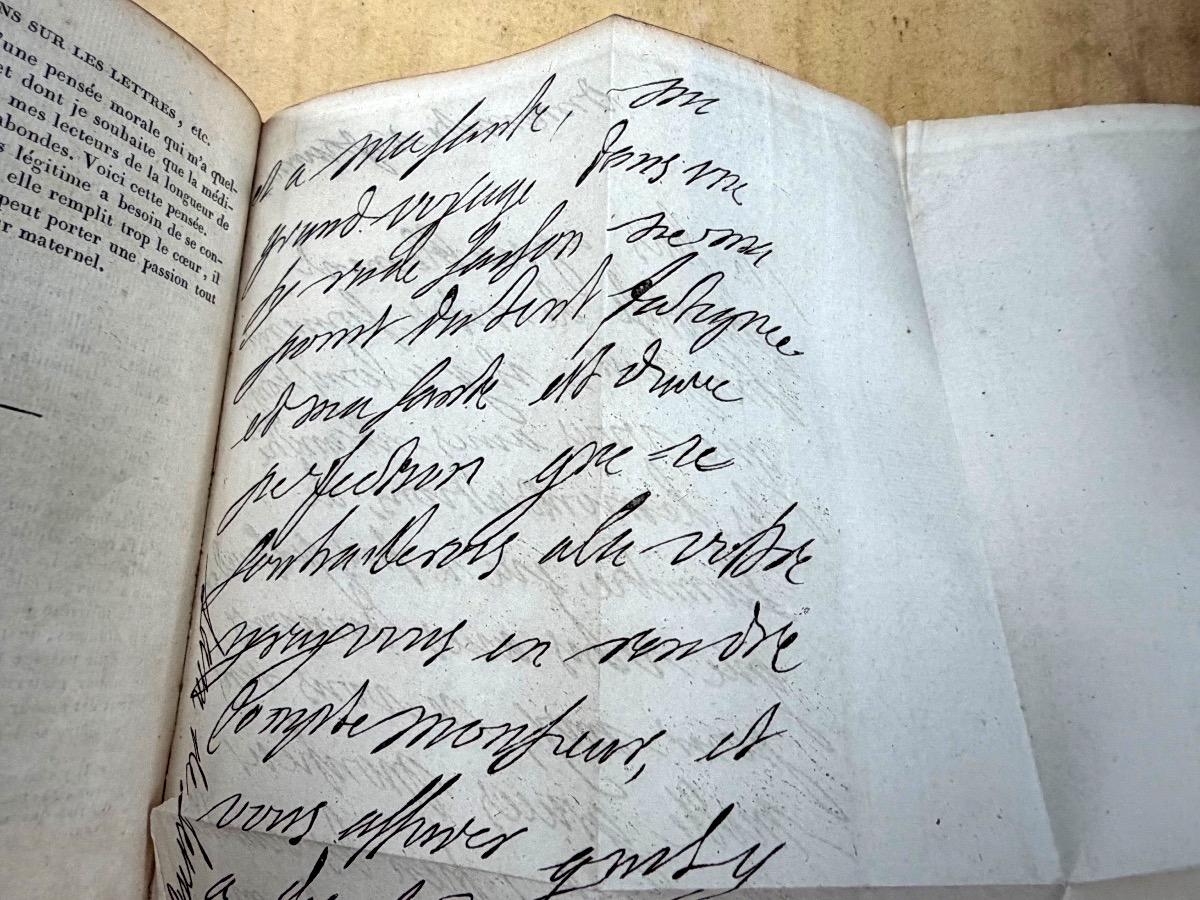 NS SUR LES LETTRES, etc.
'une pensée morale qui m'a quel-
et dont je souhaite que la médi-
mes lecteurs de la longueur de
abondes. Voici cette pensée.
s légitime a besoin de se con-
elle remplit trop le cœur, il
peut porter une passion tout
r maternel.
et a ma sante, un
grand voyage dans une
sy rude saison ne ma
point du tout fatiguee
et ma sante est dune
perfection que je
souhaiterois a la vostre
jyray vous en rendre
compte monsieur, et
vous assurer quil y
a des